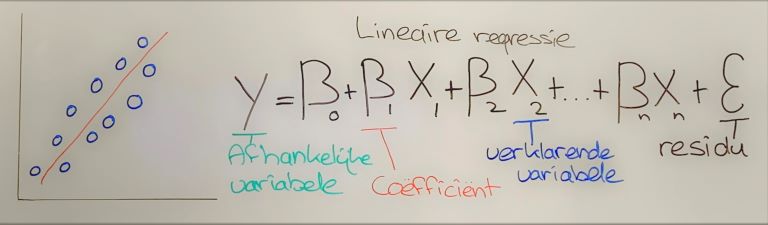 Lineaire regressie
y = β₀ + β₁ X₁ + β₂ X₂ + ... + βₙ Xₙ + ε
Afhankelijke
variabele
Coëfficiënt
verklarende
variabele
residu